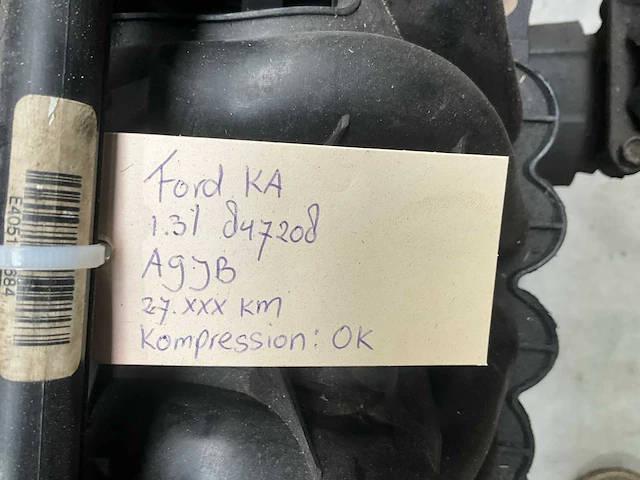 Ford KA
1.3l 847208
A9JB
27.xxx KM
Kompression: OK